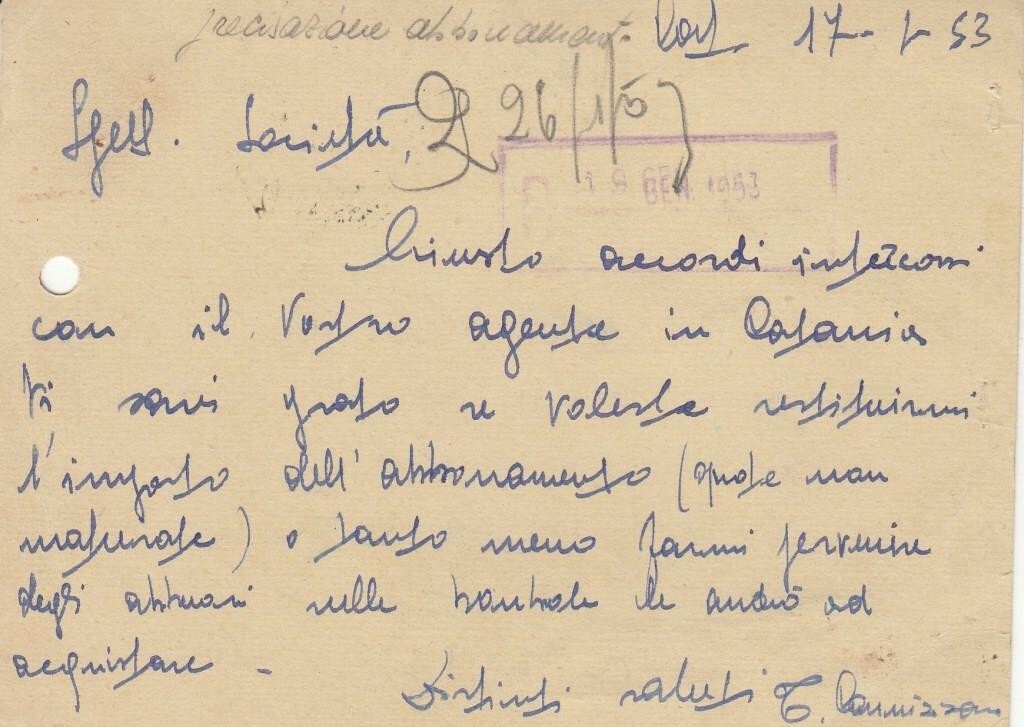 precisazione abbonament.
Cat. 17-1-53
Spett. Società,
26/1/5
19 GEN. 1953
Giusto accordi intercorsi
con il Vostro agente in Catania
Vi sarei grato se voleste restituirmi
l'importo dell'abbonamento (quote non
maturate) o tanto meno farmi pervenire
degli abbuoni sulle bombole che andrò ad
acquistare -
Distinti saluti